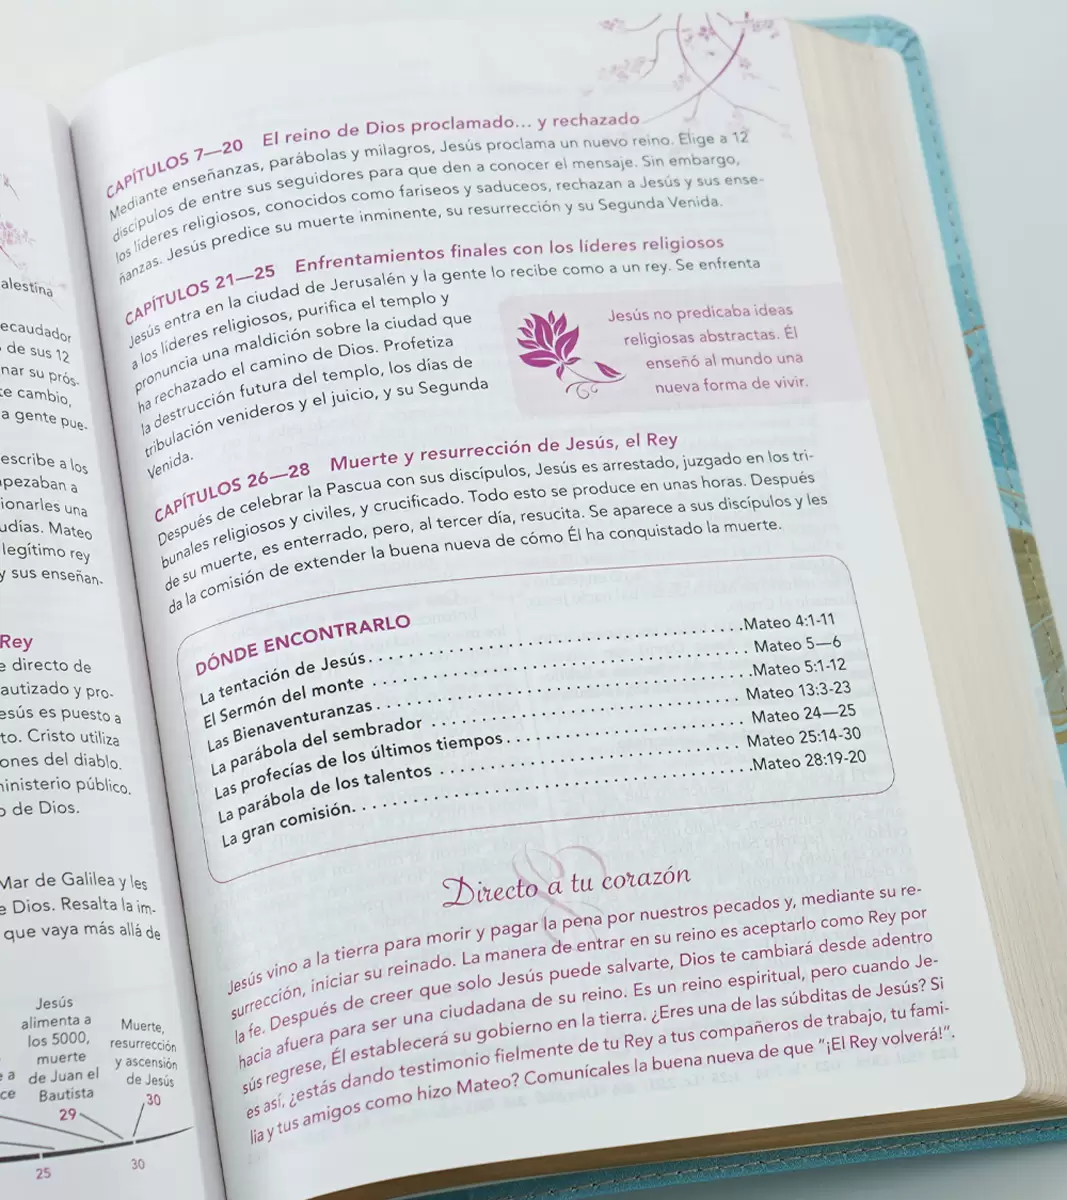 alestina
ecaudador
de sus 12
nar su prós-
te cambio,
a gente pue-
escribe a los
pezaban a
ionarles una
udías. Mateo
legítimo rey
y sus enseñan-
Rey
e directo de
autizado y pro-
esús es puesto a
to. Cristo utiliza
ones del diablo.
ministerio público.
o de Dios.
Mar de Galilea y les
e Dios. Resalta la im-
que vaya más allá de
Jesús
alimenta a
los 5000,
muerte
de Juan el
Bautista
29
Muerte,
resurrección
y ascensión
de Jesús
30
e a
ce
25
30
CAPÍTULOS 7—20 El reino de Dios proclamado... y rechazado
Mediante enseñanzas, parábolas y milagros, Jesús proclama un nuevo reino. Elige a 12
discípulos de entre sus seguidores para que den a conocer el mensaje. Sin embargo,
los líderes religiosos, conocidos como fariseos y saduceos, rechazan a Jesús y sus ense-
ñanzas. Jesús predice su muerte inminente, su resurrección y su Segunda Venida.
CAPÍTULOS 21—25 Enfrentamientos finales con los líderes religiosos
Jesús entra en la ciudad de Jerusalén y la gente lo recibe como a un rey. Se enfrenta
a los líderes religiosos, purifica el templo y
pronuncia una maldición sobre la ciudad que
ha rechazado el camino de Dios. Profetiza
la destrucción futura del templo, los días de
tribulación venideros y el juicio, y su Segunda
Venida.
Jesús no predicaba ideas
religiosas abstractas. Él
enseñó al mundo una
nueva forma de vivir.
CAPÍTULOS 26—28 Muerte y resurrección de Jesús, el Rey
Después de celebrar la Pascua con sus discípulos, Jesús es arrestado, juzgado en los tri-
bunales religiosos y civiles, y crucificado. Todo esto se produce en unas horas. Después
de su muerte, es enterrado, pero, al tercer día, resucita. Se aparece a sus discípulos y les
da la comisión de extender la buena nueva de cómo Él ha conquistado la muerte.
DÓNDE ENCONTRARLO
La tentación de Jesús. . . . . . . . . . . . . . . . . . . . . . . . . . . . . . . .Mateo 4:1-11
El Sermón del monte . . . . . . . . . . . . . . . . . . . . . . . . . . . . . . . . Mateo 5—6
Las Bienaventuranzas . . . . . . . . . . . . . . . . . . . . . . . . . . . . . . . .Mateo 5:1-12
La parábola del sembrador . . . . . . . . . . . . . . . . . . . . . . . . . . . Mateo 13:3-23
Las profecías de los últimos tiempos . . . . . . . . . . . . . . . . . . . . Mateo 24—25
La parábola de los talentos . . . . . . . . . . . . . . . . . . . . . . . . . . Mateo 25:14-30
La gran comisión. . . . . . . . . . . . . . . . . . . . . . . . . . . . . . . . . . .Mateo 28:19-20
Directo a tu corazón
Jesús vino a la tierra para morir y pagar la pena por nuestros pecados y, mediante su re-
surrección, iniciar su reinado. La manera de entrar en su reino es aceptarlo como Rey por
la fe. Después de creer que solo Jesús puede salvarte, Dios te cambiará desde adentro
hacia afuera para ser una ciudadana de su reino. Es un reino espiritual, pero cuando Je-
sús regrese, Él establecerá su gobierno en la tierra. ¿Eres una de las súbditas de Jesús? Si
es así, ¿estás dando testimonio fielmente de tu Rey a tus compañeros de trabajo, tu fami-
lia y tus amigos como hizo Mateo? Comunícales la buena nueva de que “¡El Rey volverá!”.